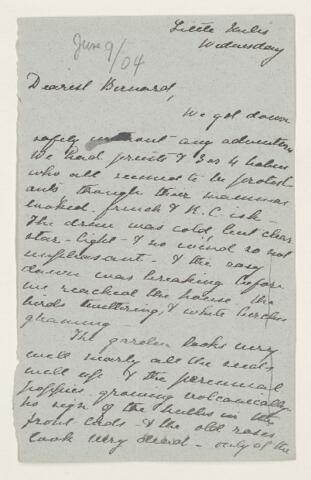 June 9/04
Little Metis
Wednesday
Dearest Bernard,
We got down
safely without any adventure
We had priests & 3 or 4 babies
who all seemed to be protest-
ants though their mammas
looked French & R.C. ish -
The drive was cold, but clear
star-light - & no wind so not
unpleasant - & the rosy
dawn was breaking before
we reached the house, the
birds twittering & white birches
gleaming -
The garden looks very
well nearly all the seeds
well up & the perennial
poppies growing volcanically
no sign of the bulbs in the
front beds - & the old roses
look very dead - only of the